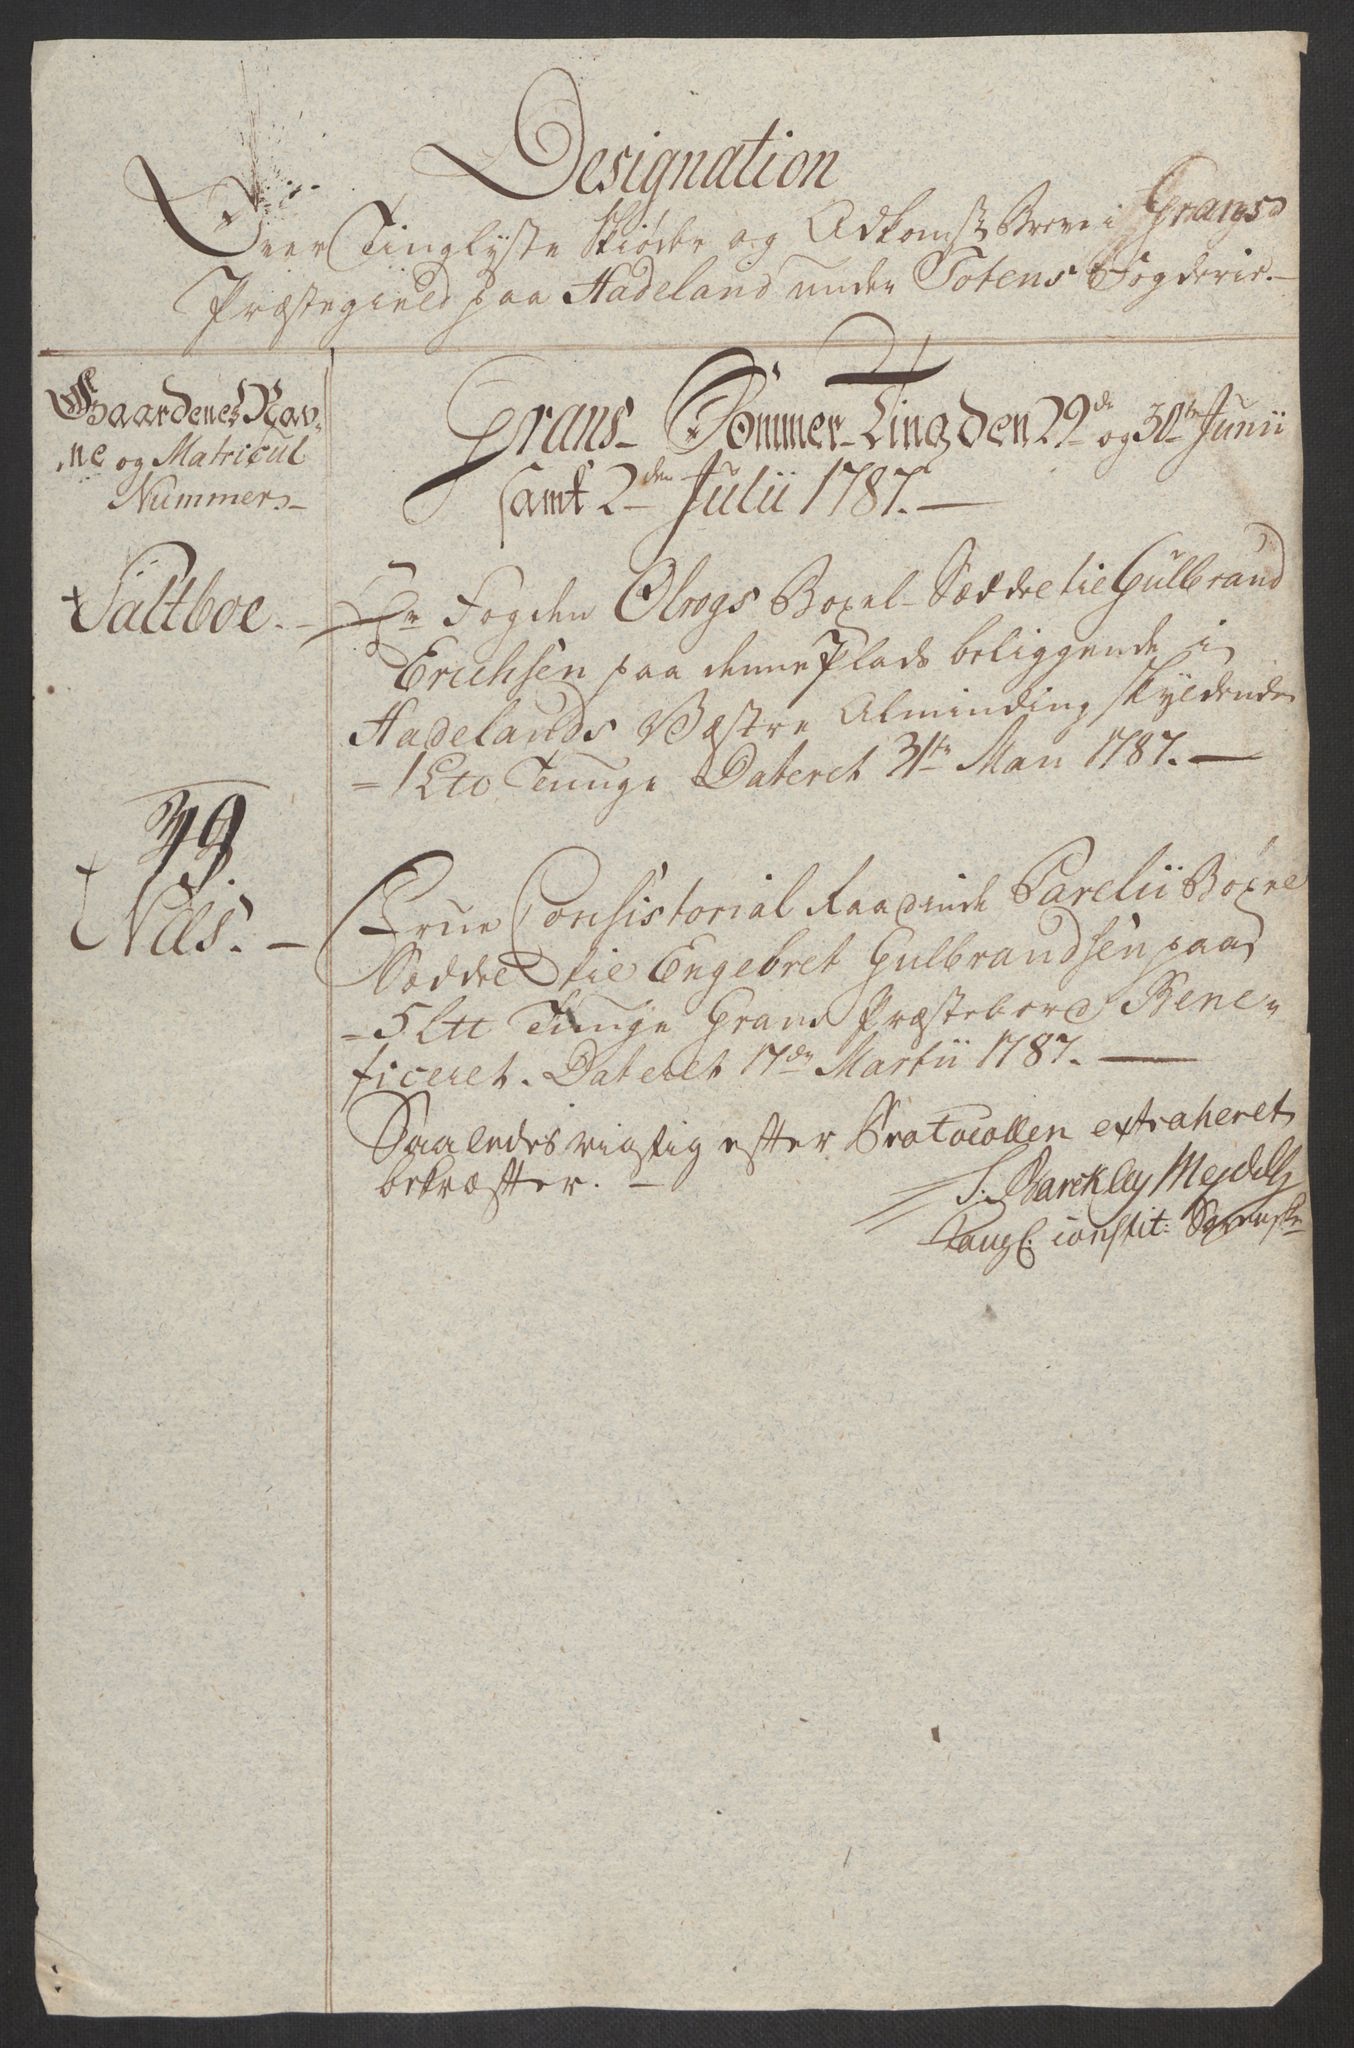 Designation
Over Tinglyste Skiøder og Adkomst Breve i Grans
Præstegield paa Hadeland under Totens Fogderie.
Gaardenes Nav-
ne og Matricul
Nummer
Grans Sommer-Ting den 29de og 30te Junii
samt 2den Julii 1787.
Saltboe.
Hr Fogden Olrogs Boxel-Sæddel til Gulbrand
Erichsen paa denne Plads beliggende i
Hadelands Vestre Alminding skyldende
1 Ltb Tunge Dateret 31te Maii 1787.
Næs.
Frue Consistorial Raadinde Parelii Boxel
Sæddel til Engebret Gulbrandsen paa
5 Ltb Tunge Grans Præstebord Bene-
ficeret. Dateret 17de Martii 1787.
Saaledes rigtig efter Protocollen extraheret
bekræfter.
S. Barckley Meydell
Kongl. constit: Sorensk